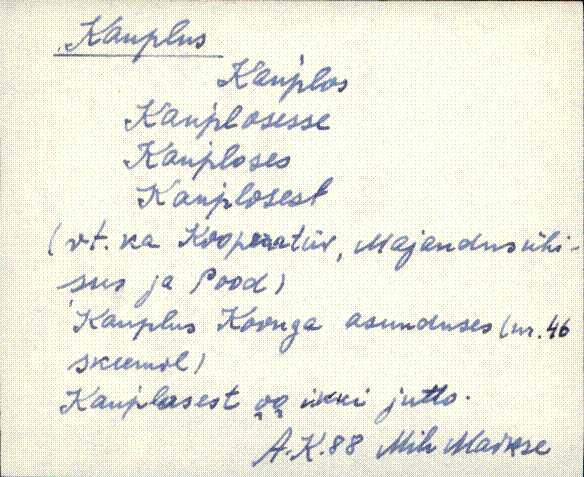 Kauplus
Kauplos
Kauplosesse
Kauploses
Kauplosest
(vt. ka Kooperatiiv, Majandusühi-
sus ja Pood)
Kauplus Koonga asunduses (nr. 46
skeemil)
Kauplasest og ikki jutto.
A.K. 88 Mih